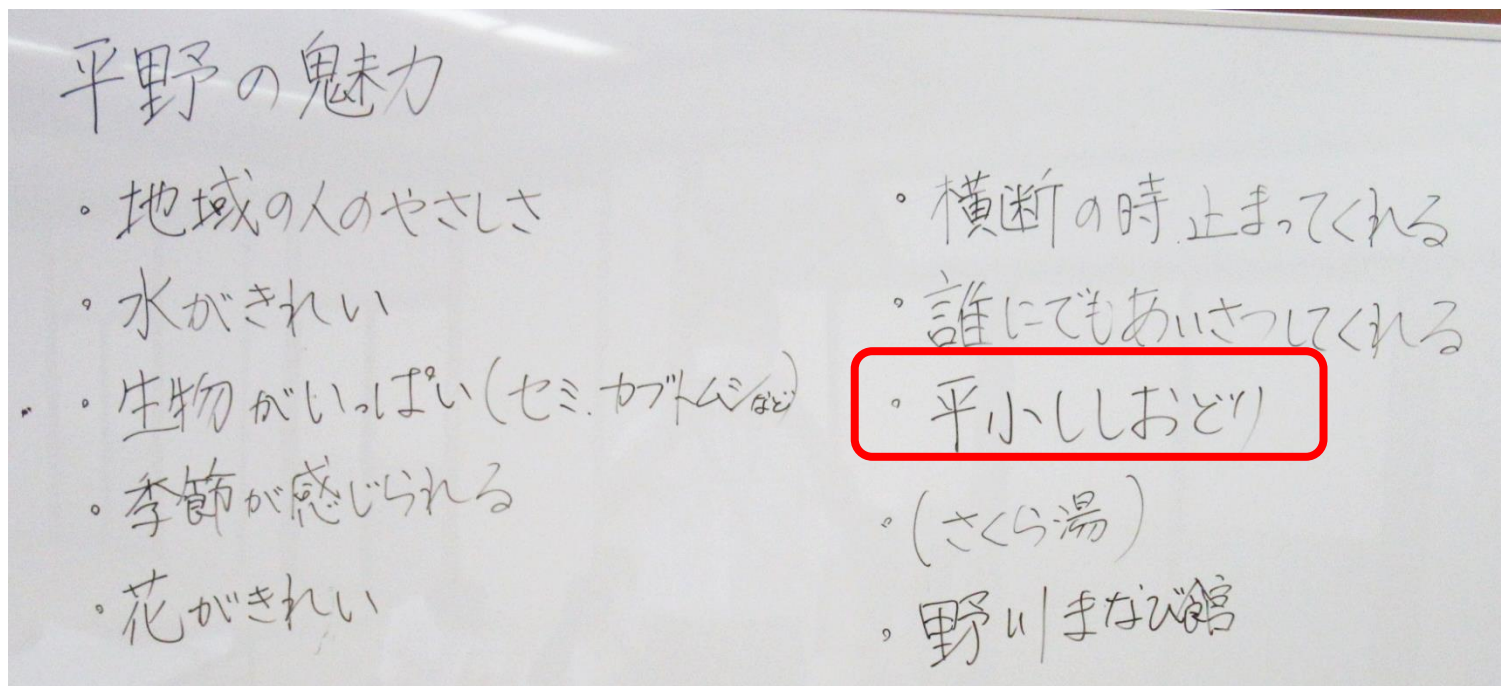 平野の魅力
・地域の人のやさしさ
・水がきれい
・生物がいっぱい(セミ.カブトムシなど)
・季節が感じられる
・花がきれい
・横断の時止まってくれる
・誰にでもあいさつしてくれる
・平小ししおどり
・(さくら湯)
・野川まなび館